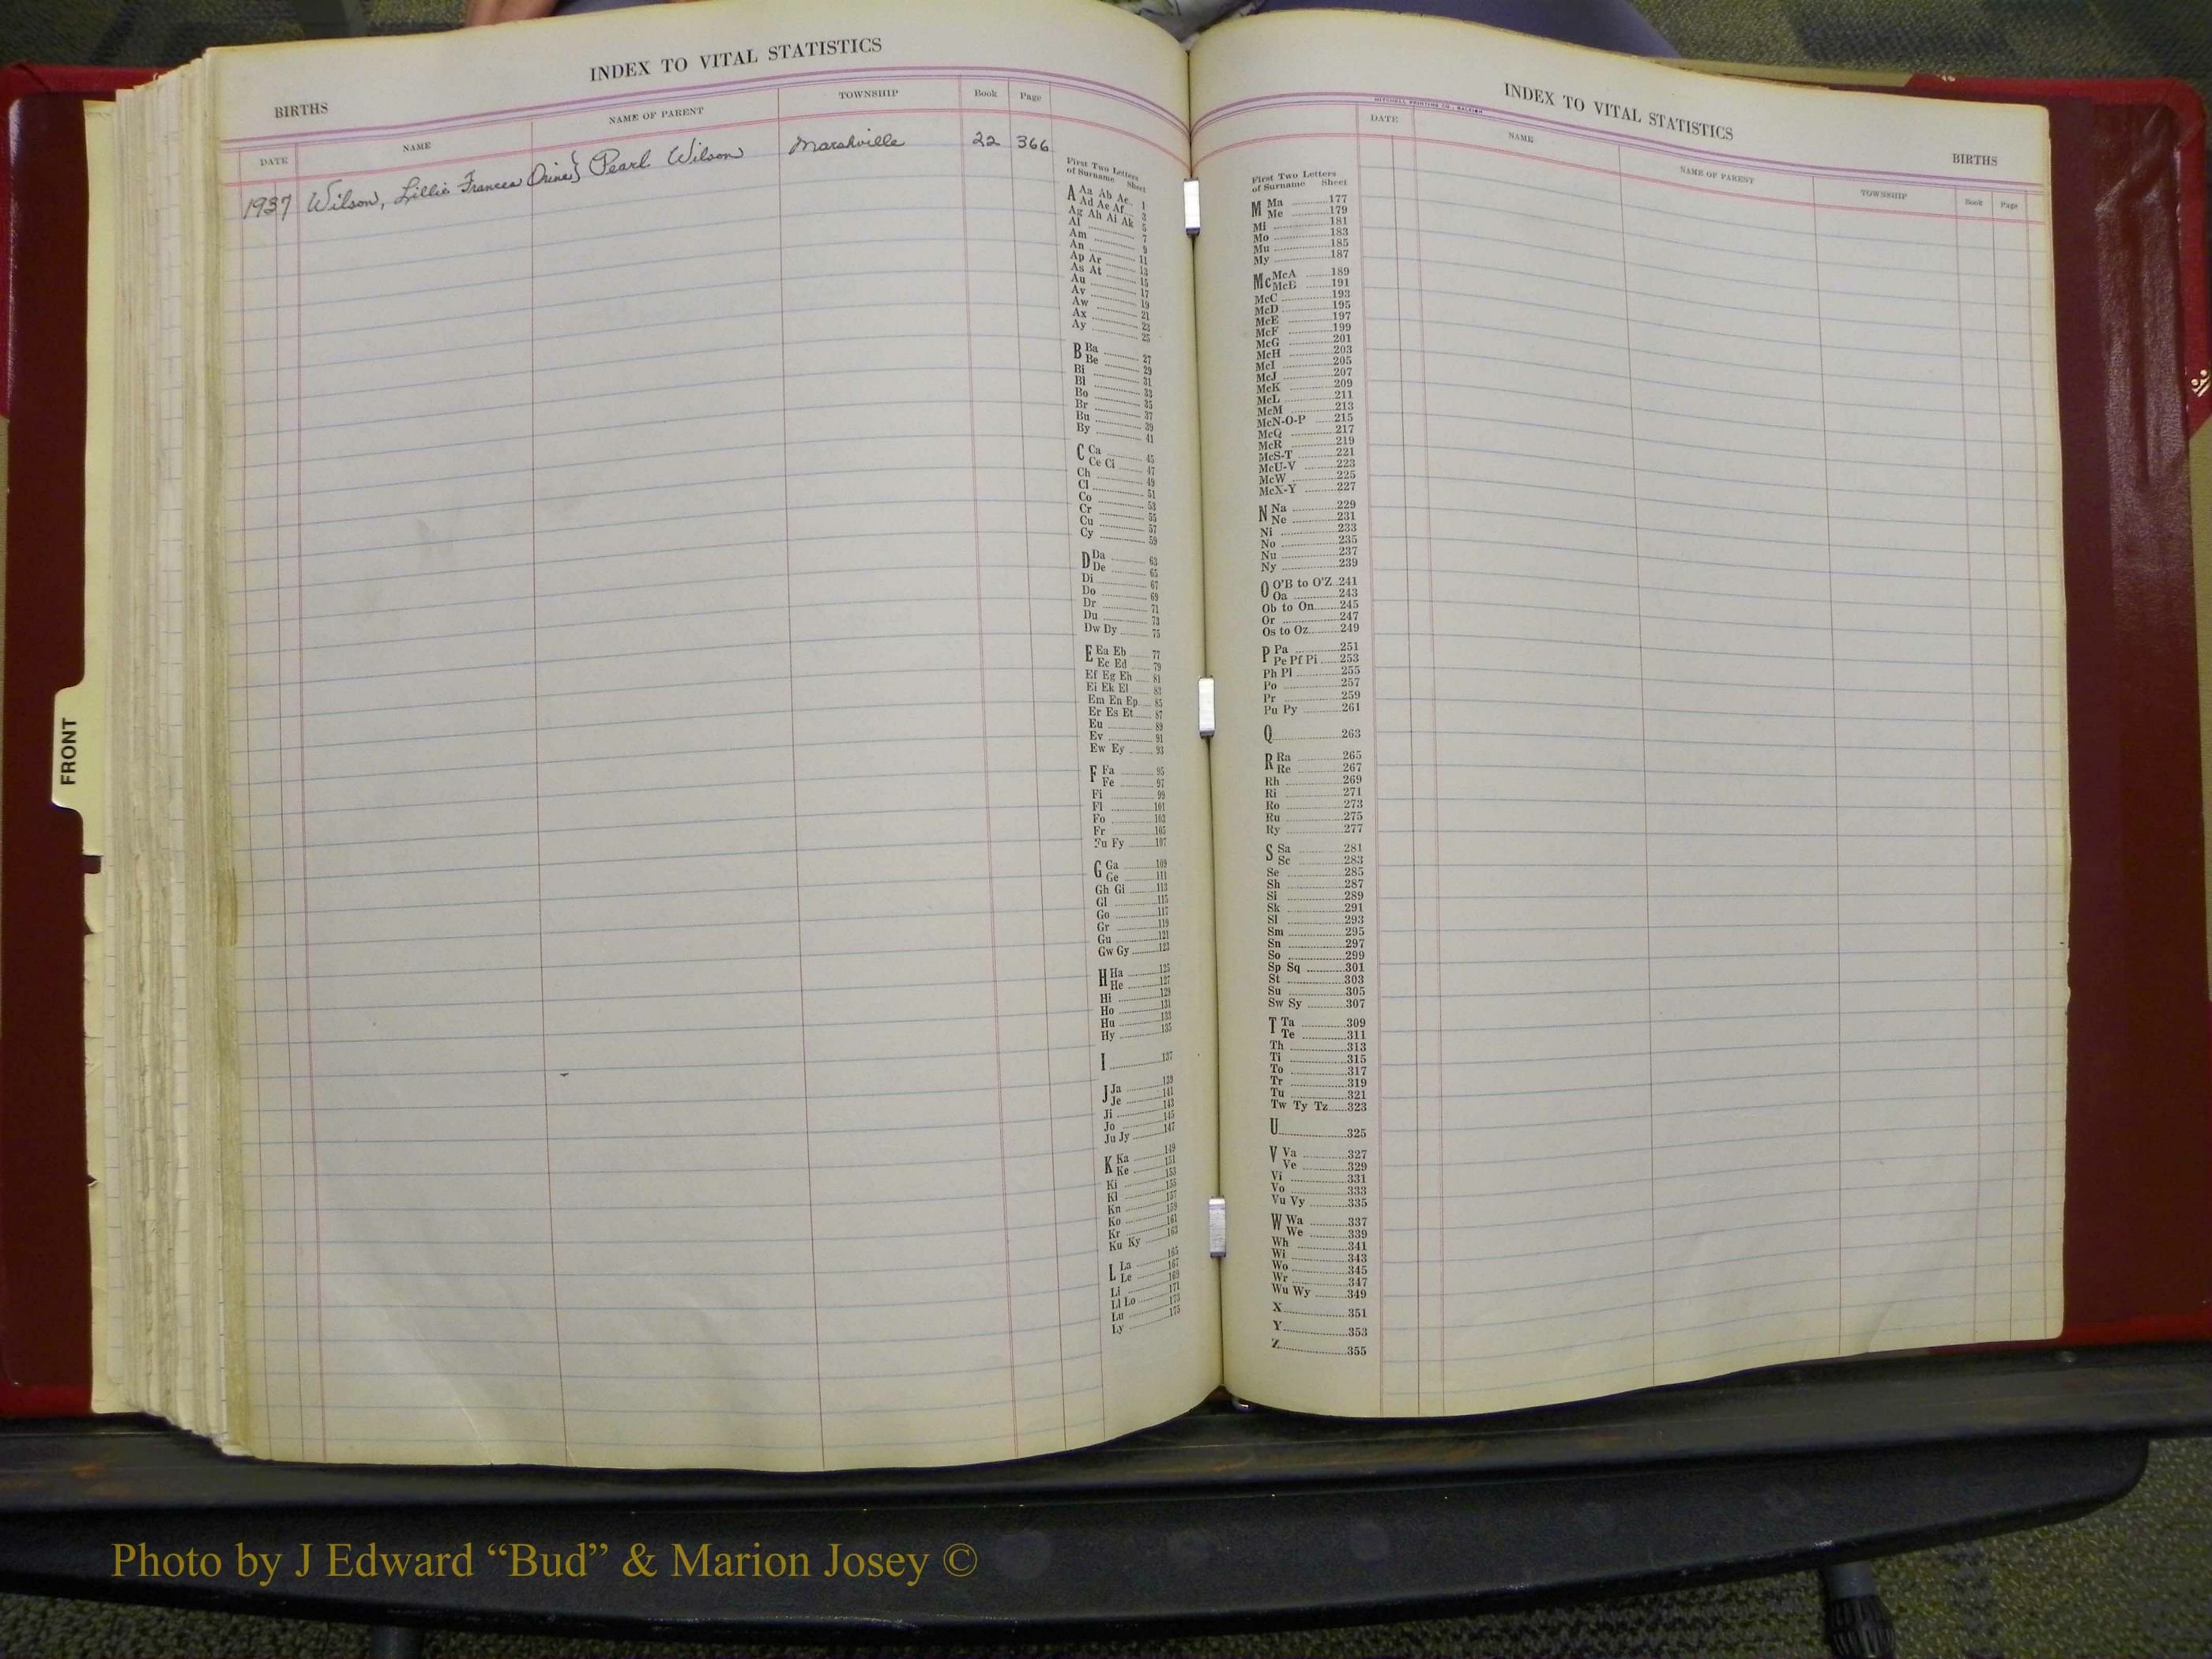 INDEX TO VITAL STATISTICS
BIRTHS
DATE NAME NAME OF PARENT TOWNSHIP Book Page
1937 Wilson, Lillie Frances Pearl Wilson Marshville 22 366
First Two Letters
of Surname Sheet
A Aa Ab Ac 1
Ad Ae Af 3
Ag Ah Ai Ak 5
Al 7
Am 9
An 11
Ap Ar 13
As At 15
Au 17
Av 19
Aw 21
Ax 23
Ay 25
B Ba 27
Be 29
Bi 31
Bl 33
Bo 35
Br 37
Bu 39
By 41
C Ca 45
Ce Ci 47
Ch 49
Cl 51
Co 53
Cr 55
Cu 57
Cy 59
D Da 63
De 65
Di 67
Do 69
Dr 71
Du 73
Dw Dy 75
E Ea Eb 77
Ec Ed 79
Ef Eg Eh 81
Ei Ek El 83
Em En Ep 85
Er Es Et 87
Eu 89
Ev 91
Ew Ey 93
F Fa 95
Fe 97
Fi 99
Fl 101
Fo 103
Fr 105
Fu Fy 107
G Ga 109
Ge 111
Gh Gi 113
Gl 115
Go 117
Gr 119
Gu 121
Gw Gy 123
H Ha 125
He 127
Hi 129
Ho 131
Hu 133
Hy 135
I 137
J Ja 139
Je 141
Ji 143
Jo 145
Ju Jy 147
K Ka 149
Ke 151
Ki 153
Kl 155
Kn 157
Ko 159
Kr 161
Ku Ky 163
L La 165
Le 167
Li 169
Ll Lo 171
Lu 173
Ly 175
INDEX TO VITAL STATISTICS
MITCHELL PRINTING CO., RALEIGH
BIRTHS
DATE NAME NAME OF PARENT TOWNSHIP Book Page
First Two Letters
of Surname Sheet
M Ma 177
Me 179
Mi 181
Mo 183
Mu 185
My 187
Mc McA 189
McB 191
McC 193
McD 195
McE 197
McF 199
McG 201
McH 203
McI 205
McJ 207
McK 209
McL 211
McM 213
McN-O-P 215
McQ 217
McR 219
McS-T 221
McU-V 223
McW 225
McX-Y 227
N Na 229
Ne 231
Ni 233
No 235
Nu 237
Ny 239
O O'B to O'Z 241
Oa 243
Ob to On 245
Or 247
Os to Oz 249
P Pa 251
Pe Pf Pi 253
Ph Pl 255
Po 257
Pr 259
Pu Py 261
Q 263
R Ra 265
Re 267
Rh 269
Ri 271
Ro 273
Ru 275
Ry 277
S Sa 281
Sc 283
Se 285
Sh 287
Si 289
Sk 291
Sl 293
Sm 295
Sn 297
So 299
Sp Sq 301
St 303
Su 305
Sw Sy 307
T Ta 309
Te 311
Th 313
Ti 315
To 317
Tr 319
Tu 321
Tw Ty Tz 323
U 325
V Va 327
Ve 329
Vi 331
Vo 333
Vu Vy 335
W Wa 337
We 339
Wh 341
Wi 343
Wo 345
Wr 347
Wu Wy 349
X 351
Y 353
Z 355
FRONT
Photo by J Edward “Bud” & Marion Josey ©